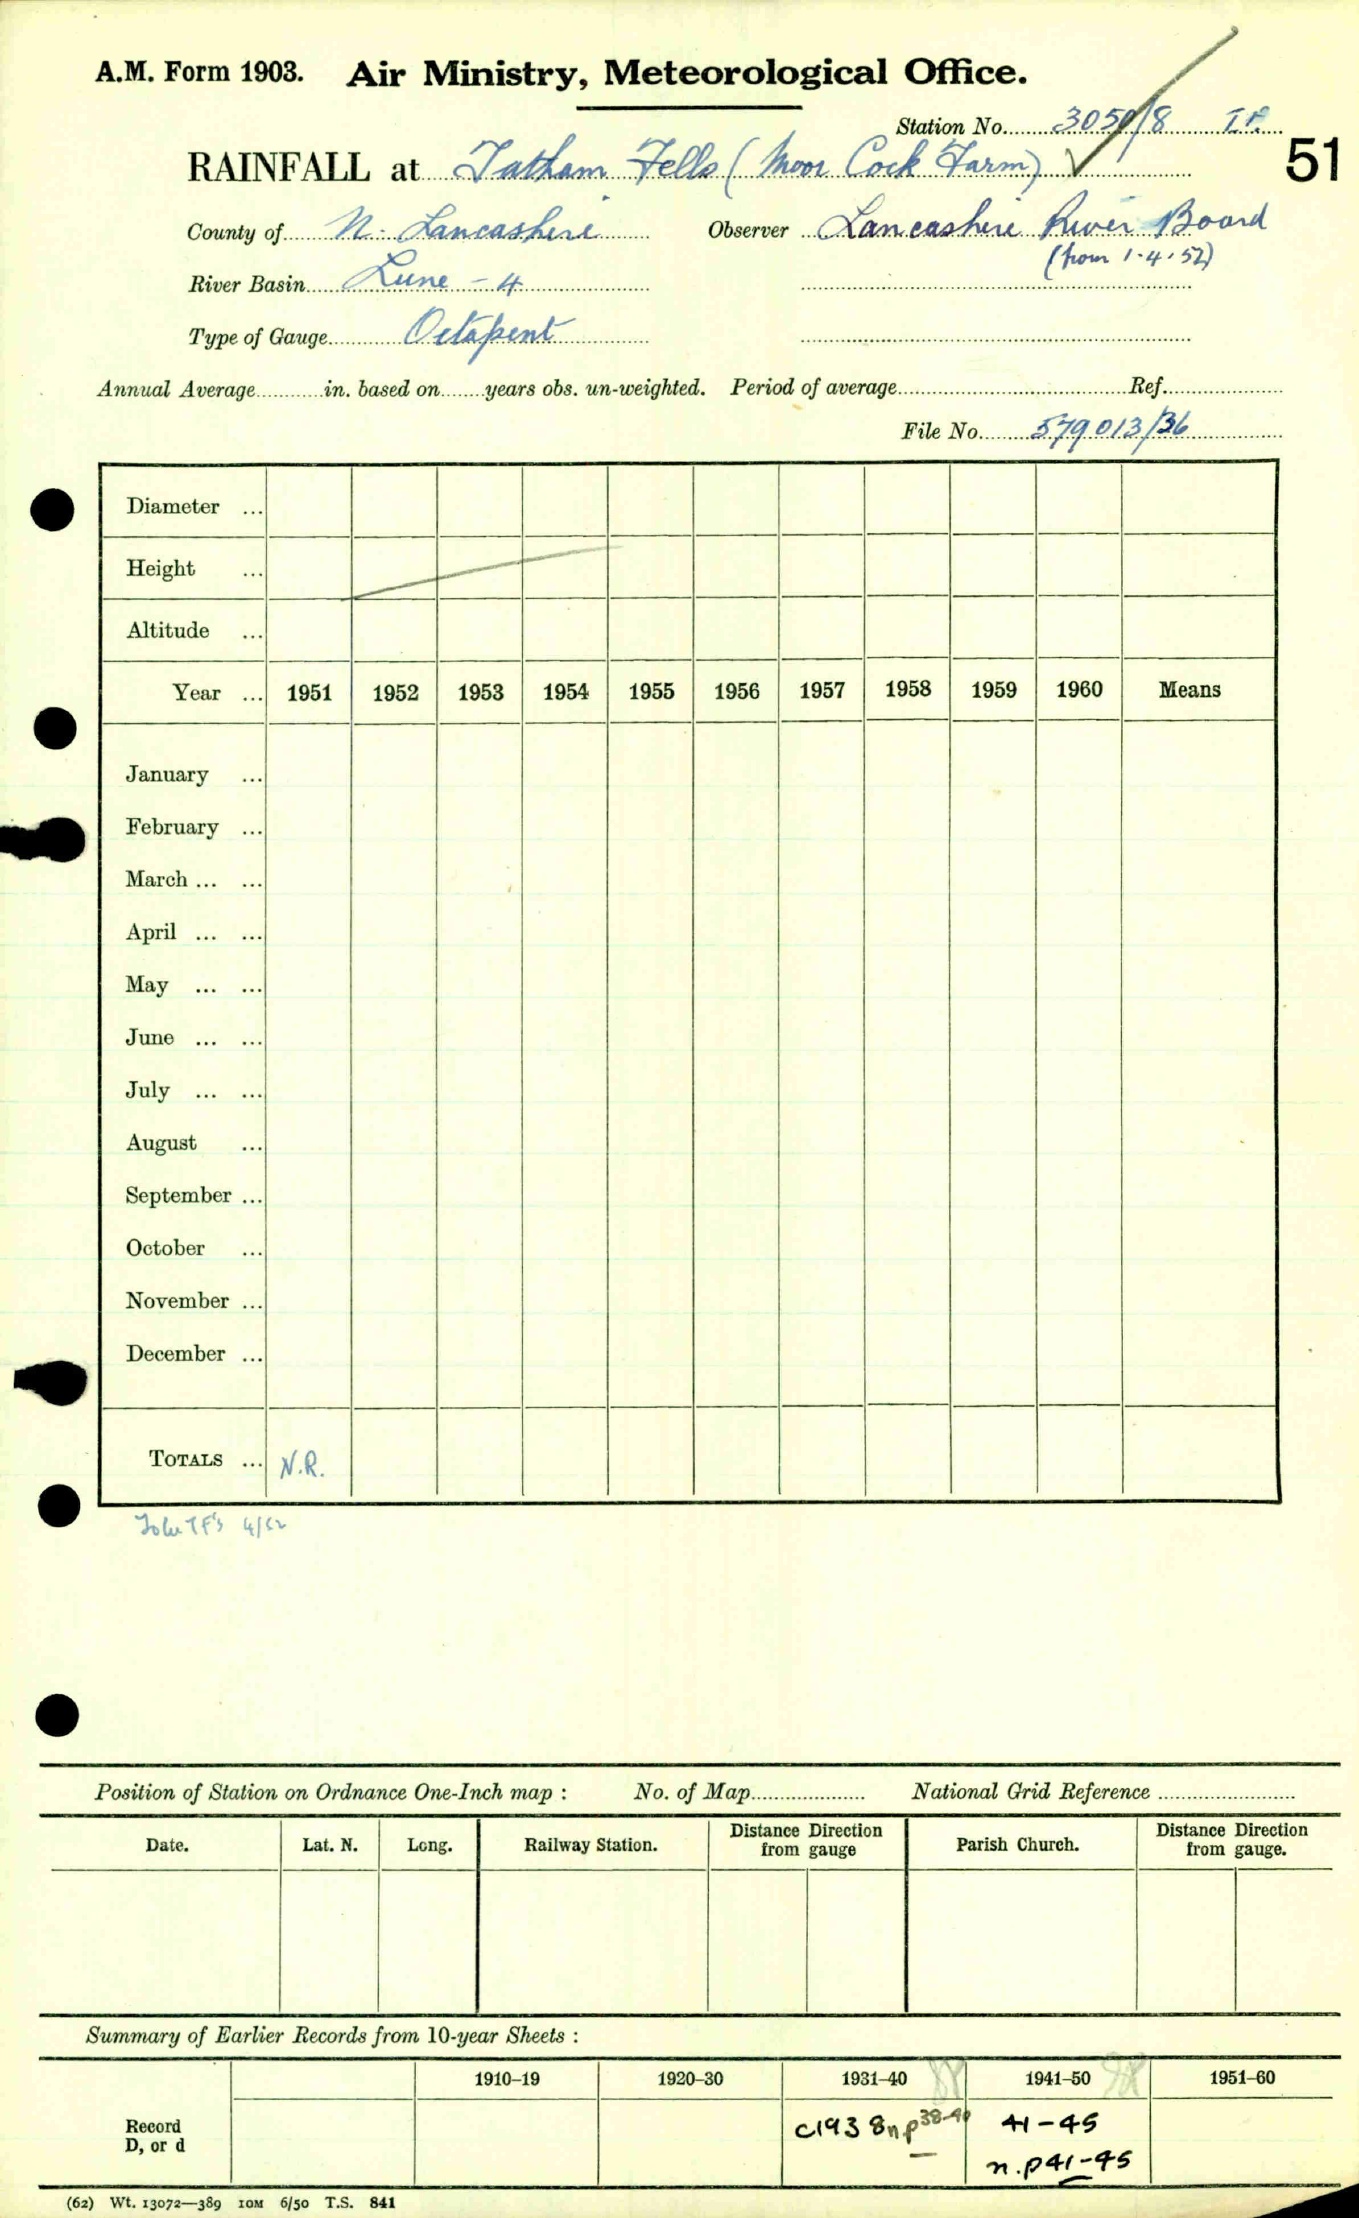 A.M. Form 1903. Air Ministry, Meteorological Office.
Station No. 3050/8
51
RAINFALL at Tatham Fells (Moor Cock Farm)
County of N. Lancashire Observer Lancashire River Board
(from 1.4.52)
River Basin Lune - 4
Type of Gauge Octapent
Annual Average in. based on years obs. un-weighted. Period of average Ref.
File No. 579013/36
Diameter ...
Height ...
Altitude ...
Year ... 1951 1952 1953 1954 1955 1956 1957 1958 1959 1960 Means
January ...
February ...
March ... ...
April ... ...
May ... ...
June ... ...
July ... ...
August ...
September ...
October ...
November ...
December ...
TOTALS ... N.R.
4/52
Position of Station on Ordnance One-Inch map : No. of Map National Grid Reference
Date. Lat. N. Long. Railway Station. Distance from Direction gauge Parish Church. Distance from Direction gauge.
Summary of Earlier Records from 10-year Sheets :
1910–19 1920–30 1931–40 1941–50 1951–60
Record D, or d
c1938 n.p 38-40 41-45
n.p 41-45
(62) Wt. 13072—389 10M 6/50 T.S. 841